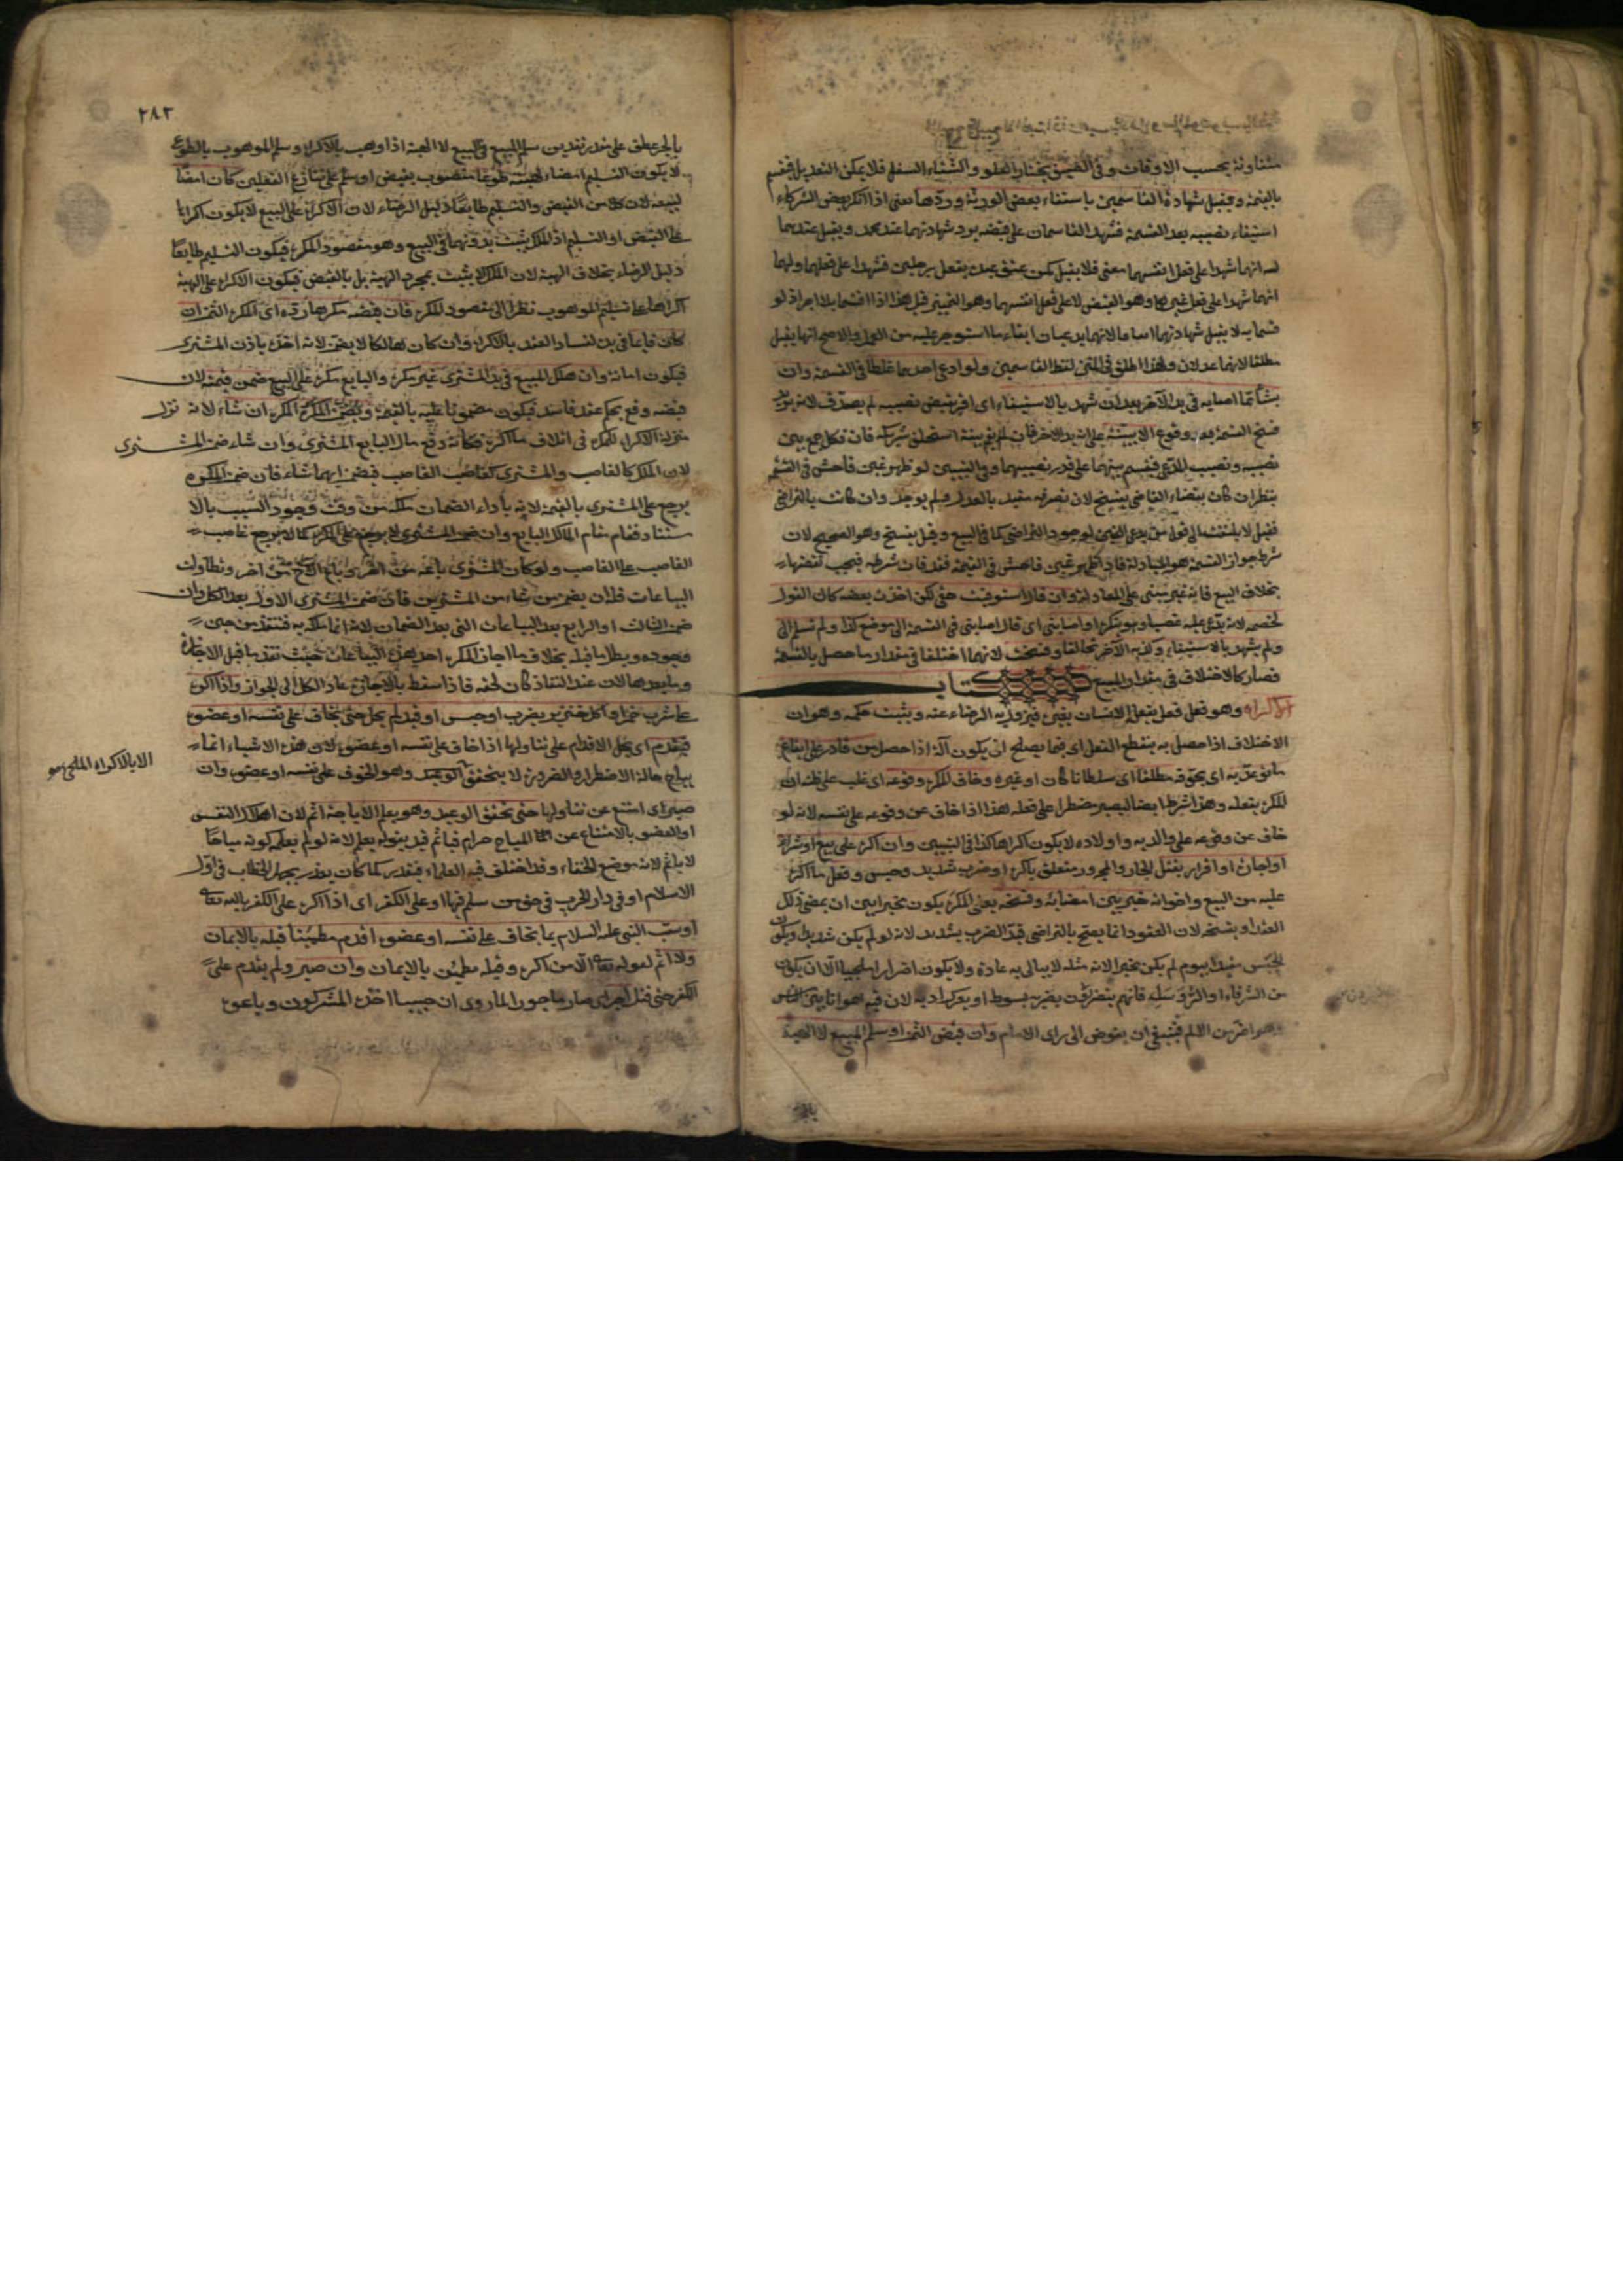 متفاوتة بحسب الاوقات وفى الضيق يختار العلو والشتاء السفل فلا يمكن التعديل فيقسم
بالقيمة وتقبل شهادة القاسمين باستيفاء بعض الورثة وردها يعنى اذا انكر بعض الشركاء
استيفاء نصيبه بعد القسمة فشهد القاسمان على قبضه يرد شهادتهما عند محمد ويقبل عندهما
له انهما شهدا على فعل انفسهما معنى فلا يقبل كمن عتق عبده بفعل رجلين فشهدا على فعلهما ولهما
انهما شهدا على فعل غيرهما وهو القبض لا على فعل انفسهما وهو التمييز قيل هذا اذا اقتسما بلا اجر اذ لو
قسما به لا يقبل شهادتهما اجماعا لانهما يدعيان ايفاء ما استوجر عليه من العمل والاصح انها يقبل
مطلقا لانهما عدلان ولهذا اطلق فى المتن لفظ القاسمين ولو ادعى احدهما غلطا فى القسمة وان
شيئا مما اصابه فى يد الآخر بعد ان شهد بالاستيفاء اى اقر بقبض نصيبه لم يصدق لانه يريد
فسخ القسمة بعد وقوع الا ببينة على انه بيد الاخر فان لم يقم بينة استحلف شريكه فان نكل جمع بين
نصيبه ونصيب المدعى فيقسم بينهما على قدر نصيبهما وفى التبيين لو ظهر غبن فاحش فى القسمة
ينظر ان كان بقضاء القاضى ينفسخ لان تصرفه مقيد بالعدل فلم يوجد وان كانت بالتراضى
فقيل لا يلتفت الى قول من يدعى الغبن لوجود التراضى كما فى البيع وقيل يفسخ وهو الصحيح لان
شرط جواز القسمة هو المعادلة فاذا ظهر غبن فاحش فى القيمة فقد فات شرطه فيجب نقضها
بخلاف البيع فانه غير مبنى على المعادلة وان قال استوفيت حقى لكن اخذت بعضه كان القول
لخصمه لانه يدعى عليه غصبا وهو ينكر او اصابنى اى قال اصابنى فى القسمة الى موضع كذا ولم تسلم الى
ولم يشهد بالاستيفاء وكذبه الآخر تحالفا وفسخت لانهما اختلفا فى مقدار ما حصل بالقسمة
فصار كالاختلاف فى مقدار المبيع كتاب
الاكراه وهو فعل يفعله الانسان بغيره فيزول به الرضاء عنه ويثبت حكمه وهو ان
الاختلاف اذا حصل به ينقطع الفعل اى فيما يصلح ان يكون آلة اذا حصل من قادر على ايقاع
ما توعد به اى يخوف مطلقا اى سلطانا كان او غيره وخاف المكره وقوعه اى غلب على ظنه ان
المكره يفعله وهذا شرط ايضا ليصير مضطرا على فعله هذا اذا خاف عن وقوعه على نفسه لانه لو
خاف عن وقوعه على والديه واولاده لا يكون اكراها كذا فى التبيين وان اكره على بيع او شراء
او اجارة او اقرار بقتل الجار والمجرور متعلق باكره او ضرب شديد وحبس وفعل ما اكره
عليه من البيع واخواته خير بين امضائه وفسخه يعنى المكره يكون مخيرا بين ان يمضى ذلك
العقد او يفسخه لان العقود انما يصح بالتراضى قيد الضرب بشديد لانه لو لم يكن شديدا ويكون
الحبس مقيدا بيوم لم يكن مخيرا لانه مثله لا يبالى به عادة ولا يكون اضرارا ملجيا الا ان يكون
من الشرفاء او الرؤساء فانهم يتضررون بضربه بسوط او بعرك اذنه لان فيه هوانا بين الناس
وهو اضر من الالم فينبغى ان يفوض الى راى الامام وان قبض الثمن او سلم المبيع لا الهبة
٢٨٣
بالجر عطف على مقدر تقديره سلم المبيع فى البيع لا الهبة اذا وهب بالاكراه وسلم الموهوب بالطوع
لا يكون التسليم امضاء للهبة طوعا منصوب بقبض او سلم على تنازع الفعلين كان امضاء
لبيعه لان كلا من القبض والتسليم طايعا دليل الرضاء لان الاكراه على البيع لا يكون اكراها
على القبض او التسليم اذ الملك يثبت بدونهما فى البيع وهو مقصود المكره فيكون التسليم طايعا
دليل الرضاء بخلاف الهبة لان الملك لا يثبت بمجرد الهبة بل بالقبض فيكون الاكراه على الهبة
اكراها على تسليم الموهوب نظرا الى مقصود المكره فان قبضه مكرها رده اى المكره الثمن ان
كان قايما فى يده لفساد العقد بالاكراه وان كان هالكا لا يضمن لانه اخذه باذن المشترى
فيكون امانة وان هلك المبيع فى يد المشترى غير مكره والبايع مكره على البيع ضمن قيمته لان
قبضه وقع بحكم عقد فاسد فيكون مضمونا عليه بالقيمة ويضمن المكره المكره ان شاء لانه نزل
منزلة الاكراه المكره فى اتلاف ما اكره فكانه دفع مال البايع المشترى وان شاء ضمن المشترى
لان المكره كالغاصب والمشترى كغاصب الغاصب فيضمن ايهما شاء فان ضمن المكره
يرجع على المشترى بالقيمة لانه باداء الضمان ملكه من وقت وجود السبب بالا
ستناد فقام مقام المالك البايع وان ضمن المشترى لا يرجع على المكره كما لا يرجع غاصب
الغاصب على الغاصب ولو كان المشترى باعه من اخر وباع الاخر من اخر وتطاولت
البياعات فله ان يضمن من شاء من المشترين فان ضمن المشترى الاول بعد الكل وان
ضمن الثالث او الرابع بعد البياعات التى بعد الضمان لانه انما ملكه به فتنفذ من حين
وجوده ويبطل ما قبله بخلاف ما اجاز المكره احد هذه البياعات حيث نفذ ما قبل الاجازة
وما بعدها لان عند النفاذ كان لحقه فاذا سقط بالاجازة عاد الكل الى الجواز واذا اكره
على شرب خمر او اكل خنزير بضرب او حبس او قيد لم يحل حتى يخاف على نفسه او عضو
فيقدم اى يحل الاقدام على تناولها اذا خاف على نفسه او عضو لان هذه الاشياء انما
يباح حالة الاضطرار والضرورة لا يتحقق الوعيد وهو الخوف على نفسه او عضو وان
صبر اى امتنع عن تناولها حتى تحقق الوعيد وهو يعلم الاباحة اثم لان اهلاك النفس
او العضو بالامتناع عن المباح حرام فياثم قيد بقوله يعلم لانه لو لم يعلم كونه مباحا
لا ياثم لانه موضع الخفاء وقد اختلف فيه العلماء فيعذر كما كان يعذر بجهل الخطاب فى اول
الاسلام او فى دار الحرب فى حق من سلم فيها او على الكفر اى اذا اكره على الكفر بالله تعالى
او سب النبى عليه السلام بما يخاف على نفسه او عضو اقدم مطمئنا قلبه بالايمان
ولا اثم لقوله تعالى الا من اكره وقلبه مطمئن بالايمان وان صبر ولم يقدم على
الكفر حتى قتل اجر اى صار ماجورا لما روى ان خبيبا اخذه المشركون وباعو
الا بالاكراه الملجى